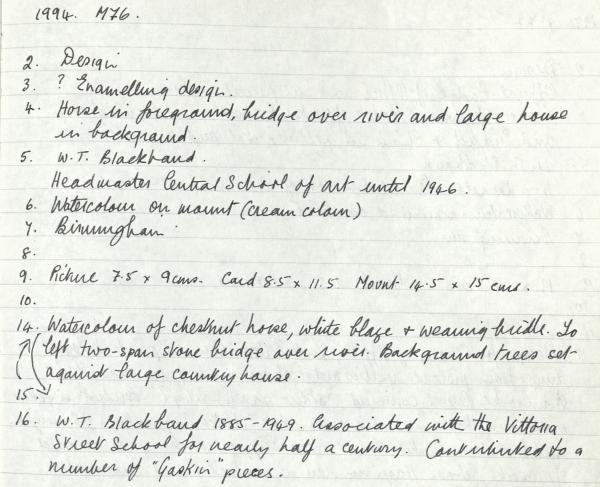 1994. M76.
2. Design
3. ? Enamelling design.
4. Horse in foreground, bridge over river and large house
in background.
5. W.T. Blackband.
Headmaster Central School of art until 1946.
6. Watercolour on mount (cream colour)
7. Birmingham.
8.
9. Picture 7.5 x 9cms. Card 8.5 x 11.5 Mount 14.5 x 15 cms.
10.
14. Watercolour of chestnut horse, white blaze + wearing bridle. To
left two-span stone bridge over river. Background trees set
against large country house.
15.
16. W.T. Blackband 1885-1949. Associated with the Vittoria
Street School for nearly half a century. Contributed to a
number of "Gaskin" pieces.